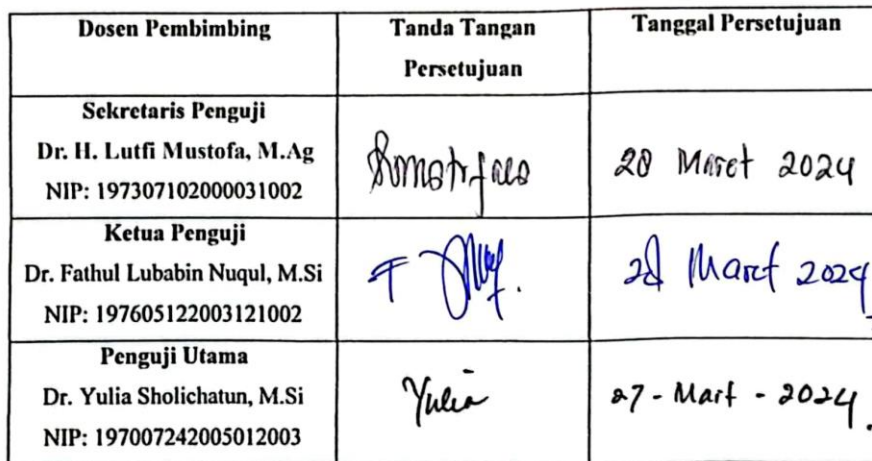 Dosen Pembimbing
Tanda Tangan
Persetujuan
Tanggal Persetujuan
Sekretaris Penguji
Dr. H. Lutfi Mustofa, M.Ag
NIP: 197307102000031002
28 Maret 2024
Ketua Penguji
Dr. Fathul Lubabin Nuqul, M.Si
NIP: 197605122003121002
28 Maret 2024
Penguji Utama
Dr. Yulia Sholichatun, M.Si
NIP: 197007242005012003
Yulia
27 - Mart - 2024.